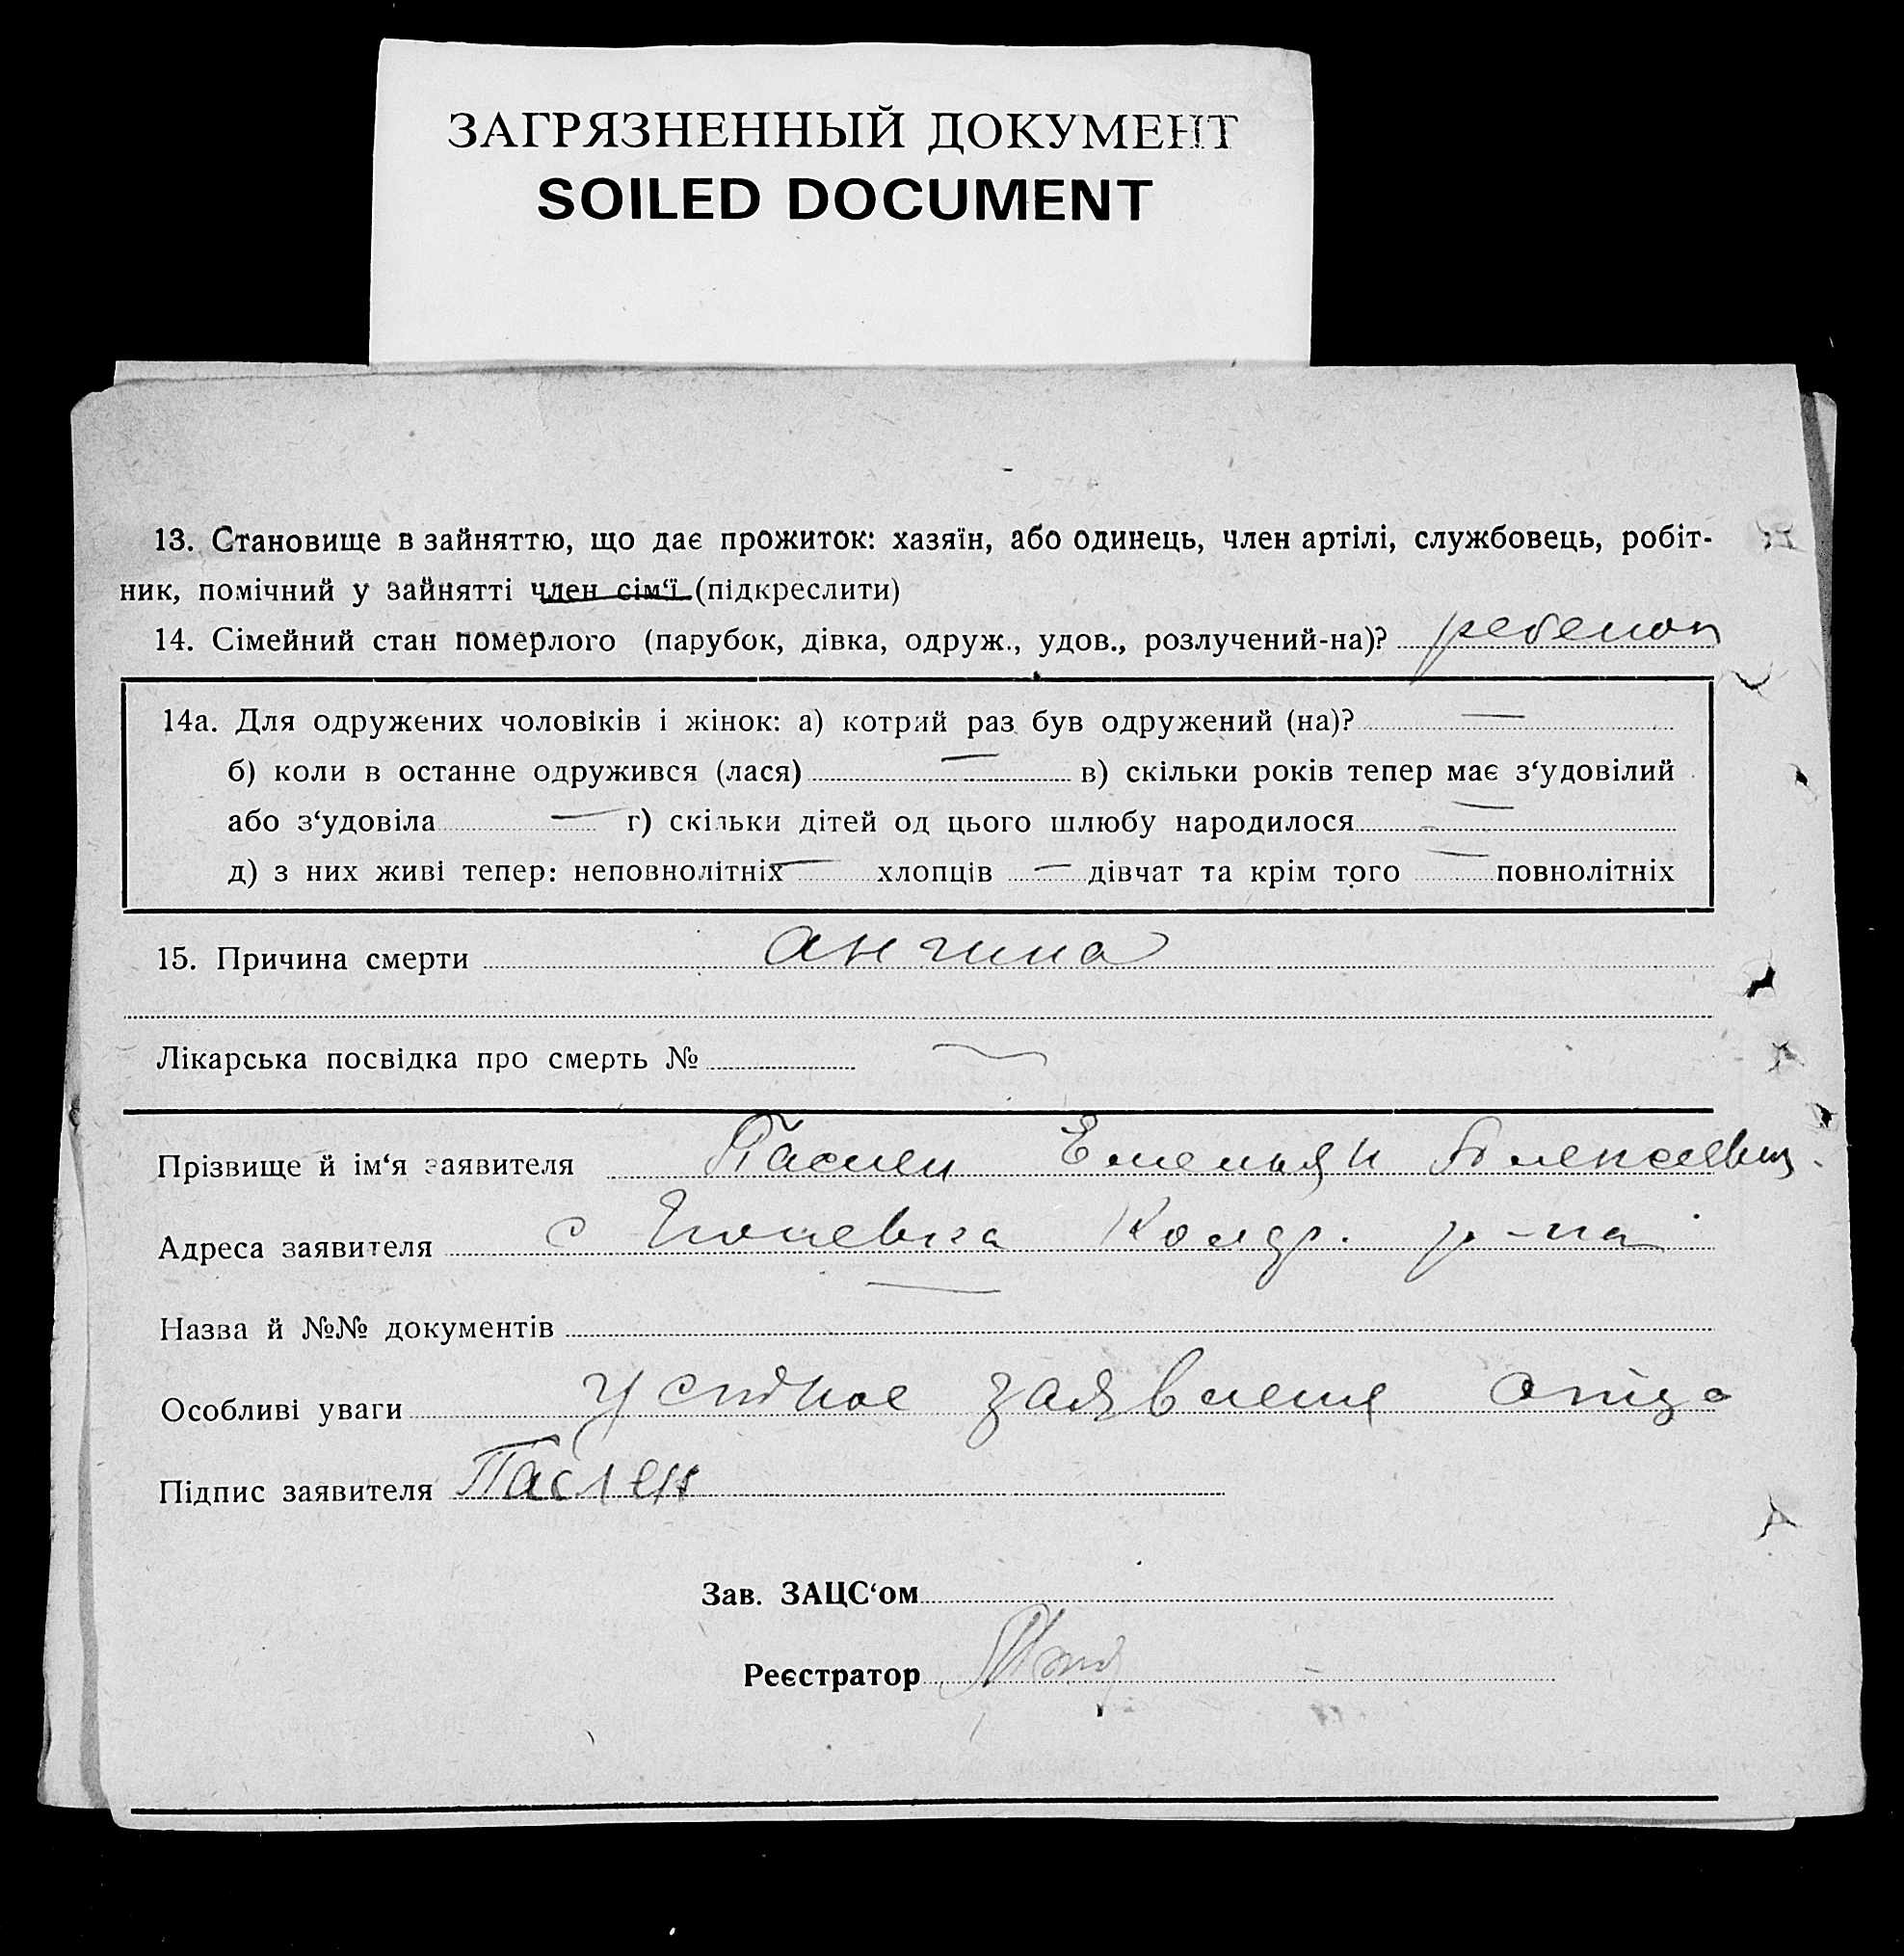 ЗАГРЯЗНЕННЫЙ ДОКУМЕНТ
SOILED DOCUMENT
13. Становище в зайняттю, що дає прожиток: хазяїн, або одинець, член артілі, службовець, робіт-
ник, помічний у зайнятті член сім‘ї (підкреслити)
14. Сімейний стан померлого (парубок, дівка, одруж., удов., розлучений-на)? ребенок
14а. Для одружених чоловіків і жінок: а) котрий раз був одружений (на)? —
б) коли в останне одружився (лася) — в) скільки років тепер має з‘удовілий
або з‘удовіла — г) скільки дітей од цього шлюбу народилося —
д) з них живі тепер: неповнолітніх — хлопців — дівчат та крім того — повнолітніх
15. Причина смерти ангина
Лікарська посвідка про смерть № —
Прізвище й ім‘я заявителя Паслен Емельян Алексеевич
Адреса заявителя с р-на
Назва й №№ документів —
Особливі уваги устное заявления отца
Підпис заявителя Паслен
Зав. ЗАЦС‘ом
Реєстратор